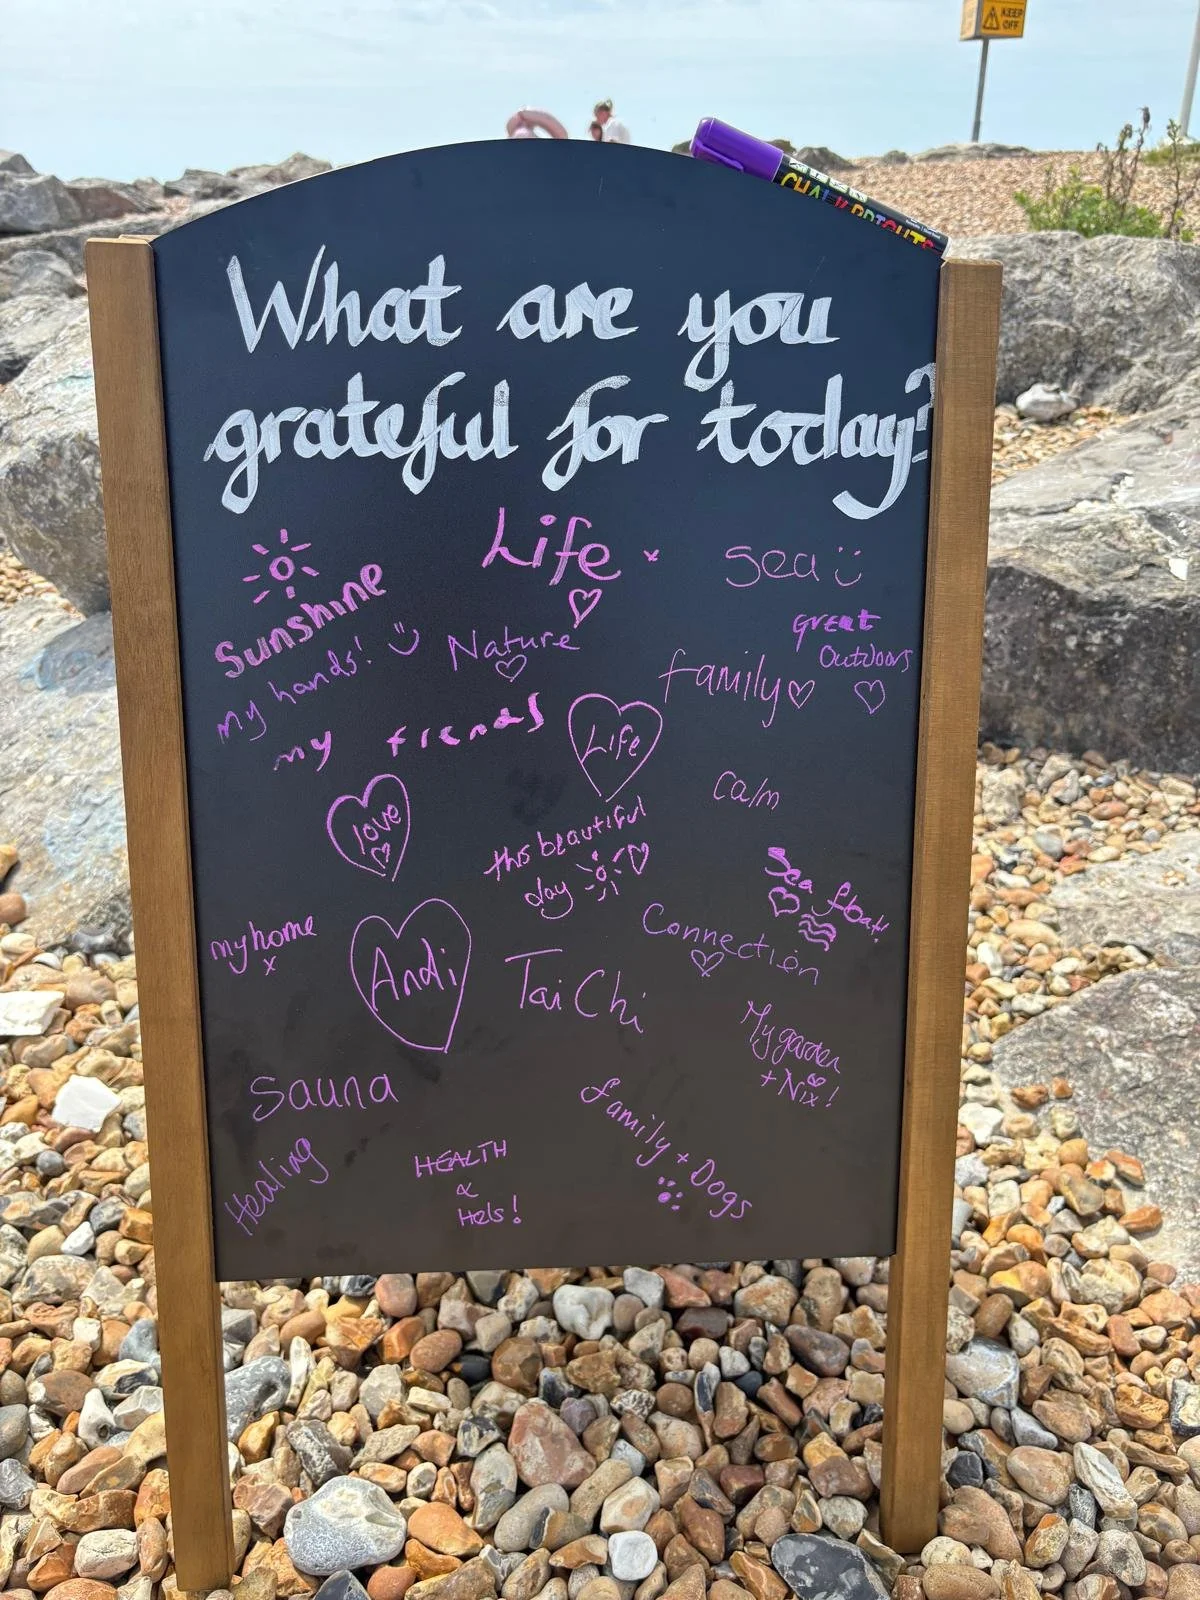 KEEP
OFF
What are you
grateful for today?
Life x
Sea
Sunshine
great
Outdoors
my hands!
Nature
family
my friends
Life
love
Calm
this beautiful
day
Sea float!
my home
x
Andi
Tai Chi
Connection
My garden
+ Nix!
Sauna
family + Dogs
Healing
HEALTH
&
Hels!